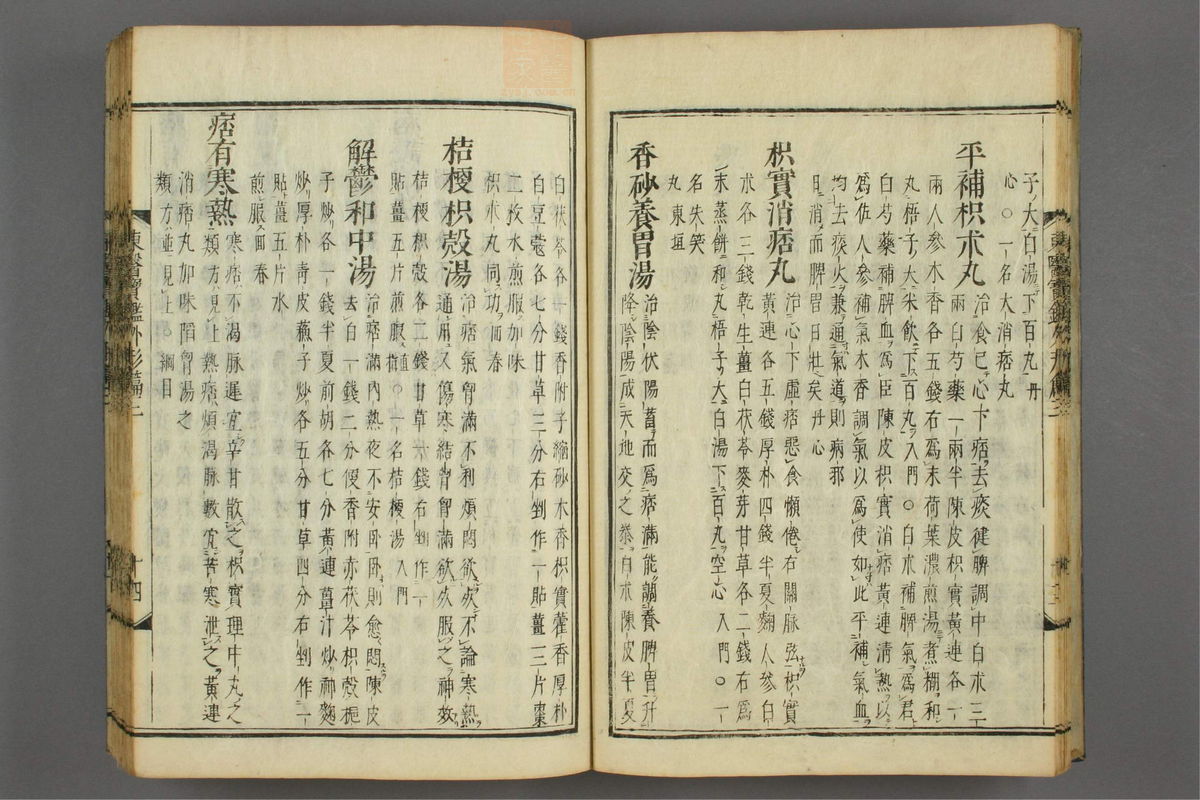 子大白湯下百丸丹
心○一名大消痞丸
平補枳朮丸
治食已心下痞去痰徤脾調中白朮三
兩白芍藥一兩半陳皮枳實黃連各一
兩人參木香各五錢右爲末荷葉濃煎湯煮糊和
丸梧子大米飮下百丸入門○白朮補脾氣爲君
白芍藥補脾血爲臣陳皮枳實消痞黃連清熱以
爲佐人參補氣木香調氣以爲使如此平補氣血
均去痰火兼通氣道則病邪
日消而脾胃日壯矣丹心
枳實消痞丸
治心下虛痞惡食懶倦右關脉弦枳實
黃連各五錢厚朴四錢半夏麴人參白
朮各三錢乾生薑白茯苓麥芽甘草各二錢右爲
末蒸餠和丸梧子大白湯下百丸空心入門○一
名失笑
丸東垣
香砂養胃湯
治陰伏陽蓄而爲痞滿能調養脾胃升
降陰陽成天地交之泰白朮陳皮半夏
白茯苓各一錢香附子縮砂木香枳實藿香厚朴
白豆蔲各七分甘草三分右剉作一貼薑三片棗
二枚水煎服加味
枳朮丸同功回春
桔梗枳殼湯
治痞氣胷滿不利煩悶欲死不論寒熱
通用又傷寒結胷胷滿欲死服之神效
桔梗枳殼各二錢甘草一錢右剉作一
貼薑五片煎服○一名桔梗湯入門
解鬱和中湯
治痞滿內熱夜不安卧卧則愈悶陳皮
去白一錢二分便香附赤茯苓枳殼梔
子炒各一錢半夏前胡各七分黃連薑汁炒神麴
炒厚朴靑皮蘓子炒各五分甘草四分右剉作一
貼薑五片水
煎服回春
痞有寒熱
寒痞不渴脉遲宜辛甘散之枳實理中丸之
類方見上熱痞煩渴脉數宜苦寒泄之黃連
消痞丸加味陷胷湯之
類方並見上○綱目
東醫寶鑑外形篇三
十四